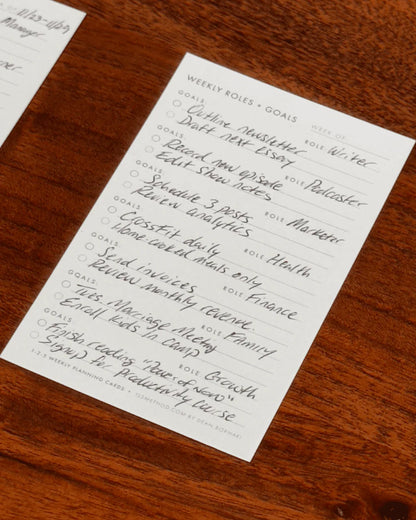 11/23-11/29
Manager
WEEKLY ROLES + GOALS
WEEK OF:
GOALS:
ROLE: Writer
Outline newsletter
Draft next Essay
GOALS:
ROLE: Podcaster
Record new episode
Edit show notes
GOALS:
ROLE: Marketer
Schedule 3 posts
Review analytics
GOALS:
ROLE: Health
Crossfit daily
Home-cooked meals only
GOALS:
ROLE: Finance
Send invoices
Review monthly revenue.
GOALS:
ROLE: Family
Tues. Marriage Meeting
Enroll kids in camp
GOALS:
ROLE: Growth
Finish reading "Power of Now"
Signup for Productivity Course
1-2-3 WEEKLY PLANNING CARDS • 123METHOD.COM BY DEAN BOKHARI